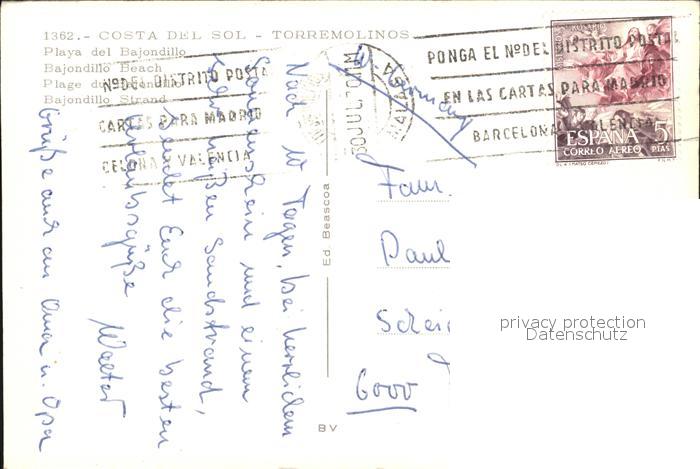 1362.- COSTA DEL SOL - TORREMOLINOS
Playa del Bajondillo
Bajondillo Beach
Plage du Bajondillo
Bajondillo Strand
Nº DEL DISTRITO POSTA
CARTAS PARA MADRID
CELONA Y VALENCIA
30 JUL 70 1M
MALAGA
PONGA EL Nº DEL DISTRITO POSTAL
EN LAS CARTAS PARA MADRID
BARCELONA VALENCIA
ESPAÑA 5
CORREO AEREO PTAS
F.N.M.T.
W. Germany
Nach 10 Tagen, bei herrlichem
Sonnenschein und einem
heißen Sandstrand,
sendet Euch die besten
Urlaubsgrüße
Walter
Grüße auch an Oma u. Opa
Ed. Beascoa
BV
Fam.
Paul
6000
privacy protection
Datenschutz